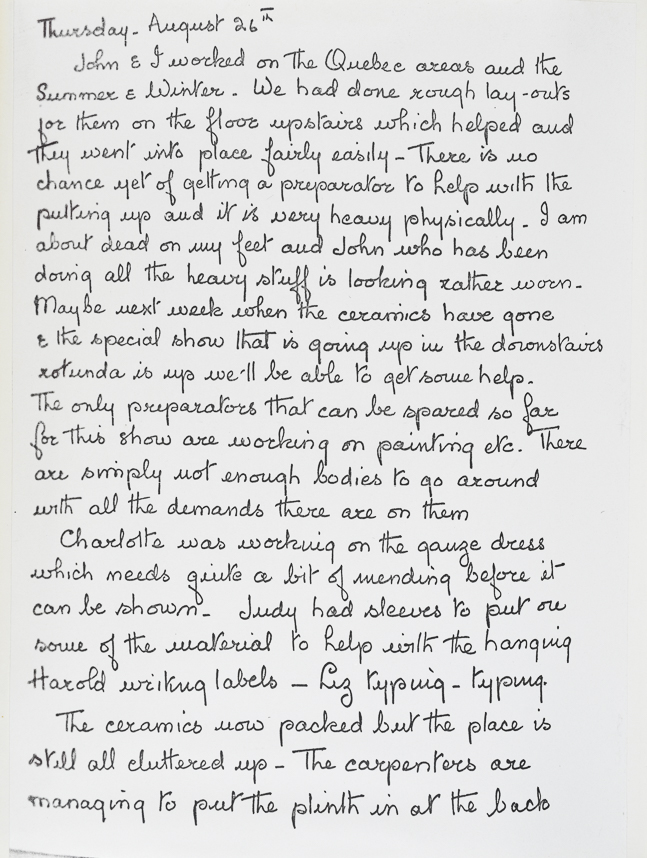 Thursday - August 26th
John & I worked on the Quebec areas and the
Summer & Winter. We had done rough lay-outs
for them on the floor upstairs which helped and
they went into place fairly easily - There is no
chance yet of getting a preparator to help with the
putting up and it is very heavy physically. I am
about dead on my feet and John who has been
doing all the heavy stuff is looking rather worn -
Maybe next week when the ceramics have gone
& the special show that is going up in the downstairs
rotunda is up we'll be able to get some help.
The only preparators that can be spared so far
for this show are working on painting etc. There
are simply not enough bodies to go around
with all the demands there are on them
Charlotte was working on the gauze dress
which needs quite a bit of mending before it
can be shown - Judy had sleeves to put on
some of the material to help with the hanging
Harold writing labels - Liz typing - typing.
The ceramics now packed but the place is
still all cluttered up - The carpenters are
managing to put the plinth in at the back